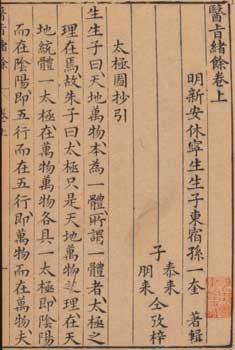 醫旨緒餘卷上
明新安休寧生生子東宿孫一奎 著輯
子 泰来 朋来 仝攷梓
太極圖抄引
生生子曰天地萬物本為一體所謂一體者太極之
理在焉故朱子曰太極只是天地萬物之理在天
地統體一太極在萬物萬物各具一太極即陰陽
而在陰陽即五行而在五行即萬物而在萬物夫
醫旨緒餘